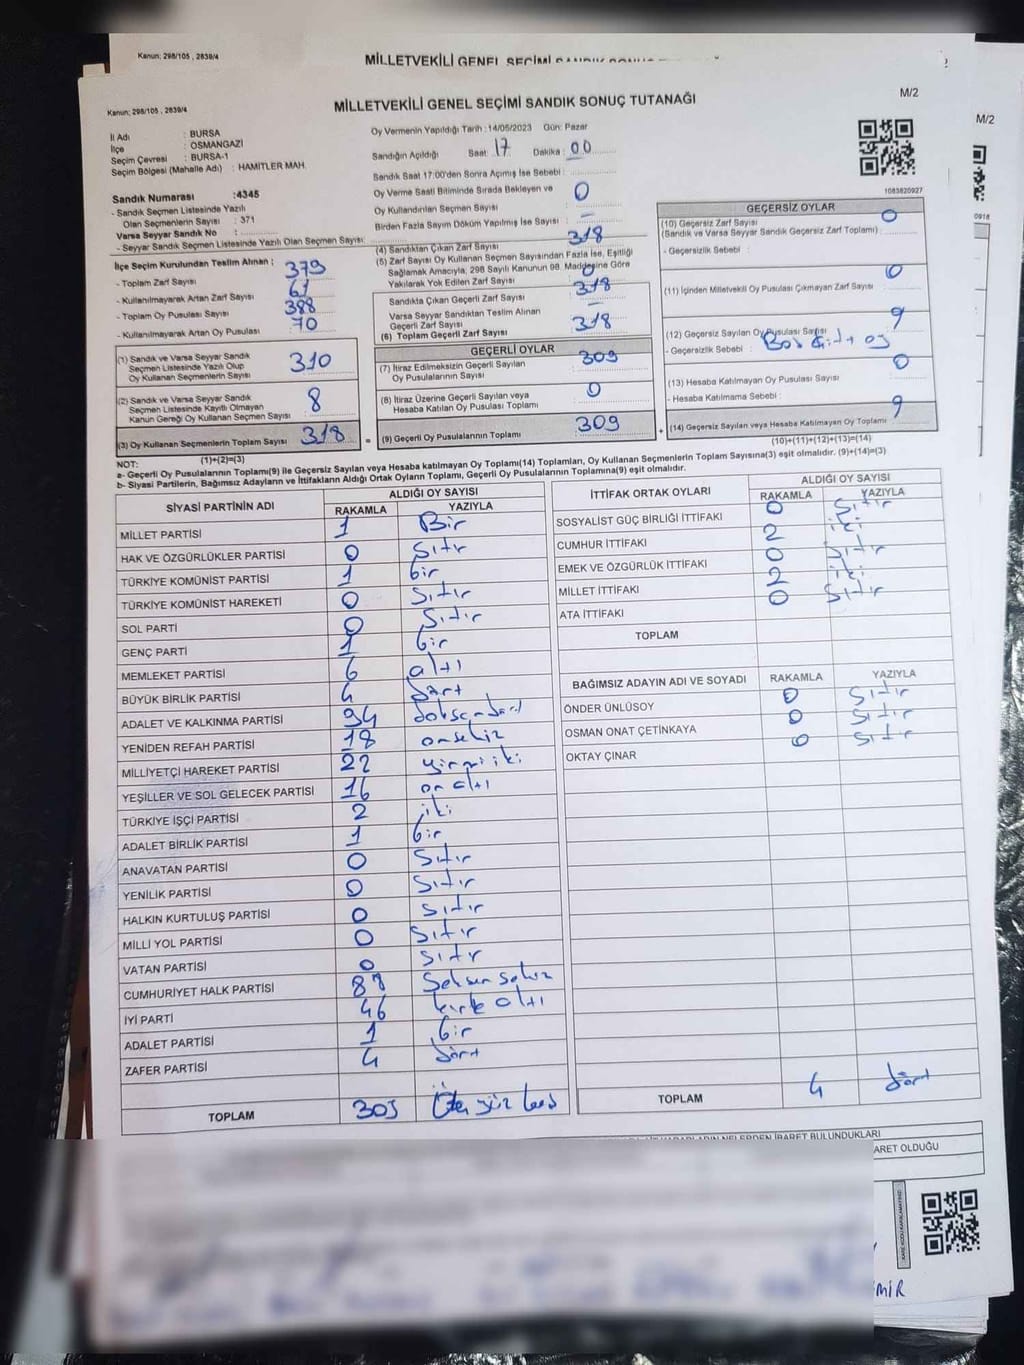 Kanun: 298/105 , 2839/4
MİLLETVEKİLİ GENEL SEÇİMİ SANDIK SONUÇ
Kanun: 298/105 , 2839/4
MİLLETVEKİLİ GENEL SEÇİMİ SANDIK SONUÇ TUTANAĞI
M/2
M/2
İl Adı : BURSA
İlçe : OSMANGAZİ
Seçim Çevresi : BURSA-1
Seçim Bölgesi (Mahalle Adı) : HAMİTLER MAH.
Oy Vermenin Yapıldığı Tarih :14/05/2023 Gün: Pazar
Sandığın Açıldığı Saat: 17 Dakika : 00
Sandık Saat 17:00'den Sonra Açılmış İse Sebebi :
Oy Verme Saati Bitiminde Sırada Bekleyen ve
Oy Kullandırılan Seçmen Sayısı : 0
Birden Fazla Sayım Döküm Yapılmış İse Sayısı : -
1083820927
Sandık Numarası :4345
- Sandık Seçmen Listesinde Yazılı
Olan Seçmenlerin Sayısı : 371
Varsa Seyyar Sandık No :
- Seyyar Sandık Seçmen Listesinde Yazılı Olan Seçmen Sayısı:
İlçe Seçim Kurulundan Teslim Alınan ;
- Toplam Zarf Sayısı : 379
- Kullanılmayarak Artan Zarf Sayısı : 61
- Toplam Oy Pusulası Sayısı : 388
- Kullanılmayarak Artan Oy Pusulası : 70
(1) Sandık ve Varsa Seyyar Sandık
Seçmen Listesinde Yazılı Olup
Oy Kullanan Seçmenlerin Sayısı : 310
(2) Sandık ve Varsa Seyyar Sandık
Seçmen Listesinde Kayıtlı Olmayan
Kanun Gereği Oy Kullanan Seçmen Sayısı : 8
(3) Oy Kullanan Seçmenlerin Toplam Sayısı : 318
(1)+(2)=(3)
(4) Sandıktan Çıkan Zarf Sayısı : 318
(5) Zarf Sayısı Oy Kullanan Seçmen Sayısından Fazla İse, Eşitliği
Sağlamak Amacıyla, 298 Sayılı Kanunun 98. Maddesine Göre
Yakılarak Yok Edilen Zarf Sayısı : 0
Sandıkta Çıkan Geçerli Zarf Sayısı : 318
Varsa Seyyar Sandıktan Teslim Alınan
Geçerli Zarf Sayısı : -
(6) Toplam Geçerli Zarf Sayısı : 318
GEÇERLİ OYLAR
(7) İtiraz Edilmeksizin Geçerli Sayılan
Oy Pusulalarının Sayısı : 309
(8) İtiraz Üzerine Geçerli Sayılan veya
Hesaba Katılan Oy Pusulası Toplamı : 0
= (9) Geçerli Oy Pusulalarının Toplamı : 309
GEÇERSİZ OYLAR
(10) Geçersiz Zarf Sayısı
(Sandık ve Varsa Seyyar Sandık Geçersiz Zarf Toplamı) : 0
- Geçersizlik Sebebi :
(11) İçinden Milletvekili Oy Pusulası Çıkmayan Zarf Sayısı : 0
(12) Geçersiz Sayılan Oy Pusulası Sayısı : 9
- Geçersizlik Sebebi : Boş
(13) Hesaba Katılmayan Oy Pusulası Sayısı : 0
- Hesaba Katılmama Sebebi :
+ (14) Geçersiz Sayılan veya Hesaba Katılmayan Oy Toplamı : 9
(10)+(11)+(12)+(13)=(14)
NOT:
a- Geçerli Oy Pusulalarının Toplamı(9) ile Geçersiz Sayılan veya Hesaba katılmayan Oy Toplamı(14) Toplamları, Oy Kullanan Seçmenlerin Toplam Sayısına(3) eşit olmalıdır. (9)+(14)=(3)
b- Siyasi Partilerin, Bağımsız Adayların ve İttifakların Aldığı Ortak Oyların Toplamı, Geçerli Oy Pusulalarının Toplamına(9) eşit olmalıdır.
SİYASİ PARTİNİN ADI ALDIĞI OY SAYISI
RAKAMLA YAZIYLA
MİLLET PARTİSİ 1 Bir
HAK VE ÖZGÜRLÜKLER PARTİSİ 0 Sıfır
TÜRKİYE KOMÜNİST PARTİSİ 1 bir
TÜRKİYE KOMÜNİST HAREKETİ 0 Sıfır
SOL PARTİ 0 Sıfır
GENÇ PARTİ 1 bir
MEMLEKET PARTİSİ 6 altı
BÜYÜK BİRLİK PARTİSİ 4 dört
ADALET VE KALKINMA PARTİSİ 94 doksandört
YENİDEN REFAH PARTİSİ 18 onsekiz
MİLLİYETÇİ HAREKET PARTİSİ 22 yirmi iki
YEŞİLLER VE SOL GELECEK PARTİSİ 16 on altı
TÜRKİYE İŞÇİ PARTİSİ 2 iki
ADALET BİRLİK PARTİSİ 1 bir
ANAVATAN PARTİSİ 0 Sıfır
YENİLİK PARTİSİ 0 Sıfır
HALKIN KURTULUŞ PARTİSİ 0 Sıfır
MİLLİ YOL PARTİSİ 0 Sıfır
VATAN PARTİSİ 0 Sıfır
CUMHURİYET HALK PARTİSİ 88 Seksen sekiz
İYİ PARTİ 46 kırk altı
ADALET PARTİSİ 1 bir
ZAFER PARTİSİ 4 dört
TOPLAM 305 Üç yüz beş
İTTİFAK ORTAK OYLARI ALDIĞI OY SAYISI
RAKAMLA YAZIYLA
SOSYALİST GÜÇ BİRLİĞİ İTTİFAKI 0 Sıfır
CUMHUR İTTİFAKI 2 iki
EMEK VE ÖZGÜRLÜK İTTİFAKI 0 Sıfır
MİLLET İTTİFAKI 2 iki
ATA İTTİFAKI 0 Sıfır
TOPLAM
BAĞIMSIZ ADAYIN ADI VE SOYADI RAKAMLA YAZIYLA
ÖNDER ÜNLÜSOY 0 Sıfır
OSMAN ONAT ÇETİNKAYA 0 Sıfır
OKTAY ÇINAR 0 Sıfır
TOPLAM 4 dört
NELERDEN İBARET BULUNDUKLARI
ARET OLDUĞU
MİR